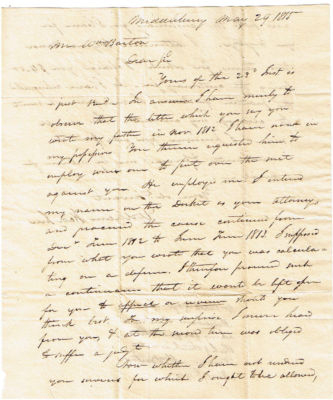 Middlebury May 29 1815
Mr Wm Barton
Dear Sir
Yours of the 23d Inst is
just Recd. In answer I have merely to
observe that the letter which you say you
wrote my father in Nov 1812 I have now in
my possession You therein request him to
employ some one to put over the suit
against you. He employed me I entered
my name on the Docket as your attorney,
and procured the cause continued from
Term 1812 to June Term 1813 I supposed
from what you wrote that you was calcula-
ting on a defence. I therefore procured such
a continuance that it would be left open
for you to should you
think best. To my surprise I never heard
from you, & at the next term was obliged
to suffer a judgt
Now whether I have not rendered
you services for which I ought to be allowed,